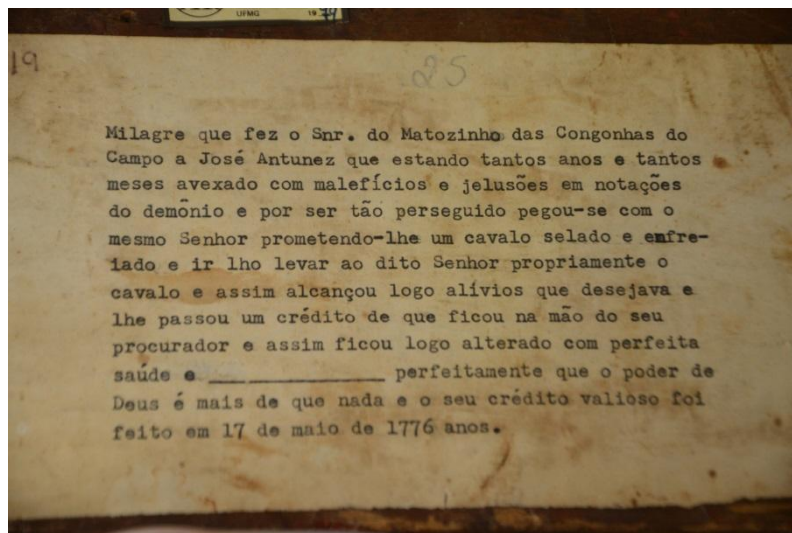 UFMG 19 79
19
25
Milagre que fez o Snr. do Matozinho das Congonhas do
Campo a José Antunez que estando tantos anos e tantos
meses avexado com malefícios e jelusões em notações
do demônio e por ser tão perseguido pegou-se com o
mesmo Senhor prometendo-lhe um cavalo selado e enfre-
iado e ir lho levar ao dito Senhor propriamente o
cavalo e assim alcançou logo alívios que desejava e
lhe passou um crédito de que ficou na mão do seu
procurador e assim ficou logo alterado com perfeita
saúde e ___ ___________ perfeitamente que o poder de
Deus é mais de que nada e o seu crédito valioso foi
feito em 17 de maio de 1776 anos.